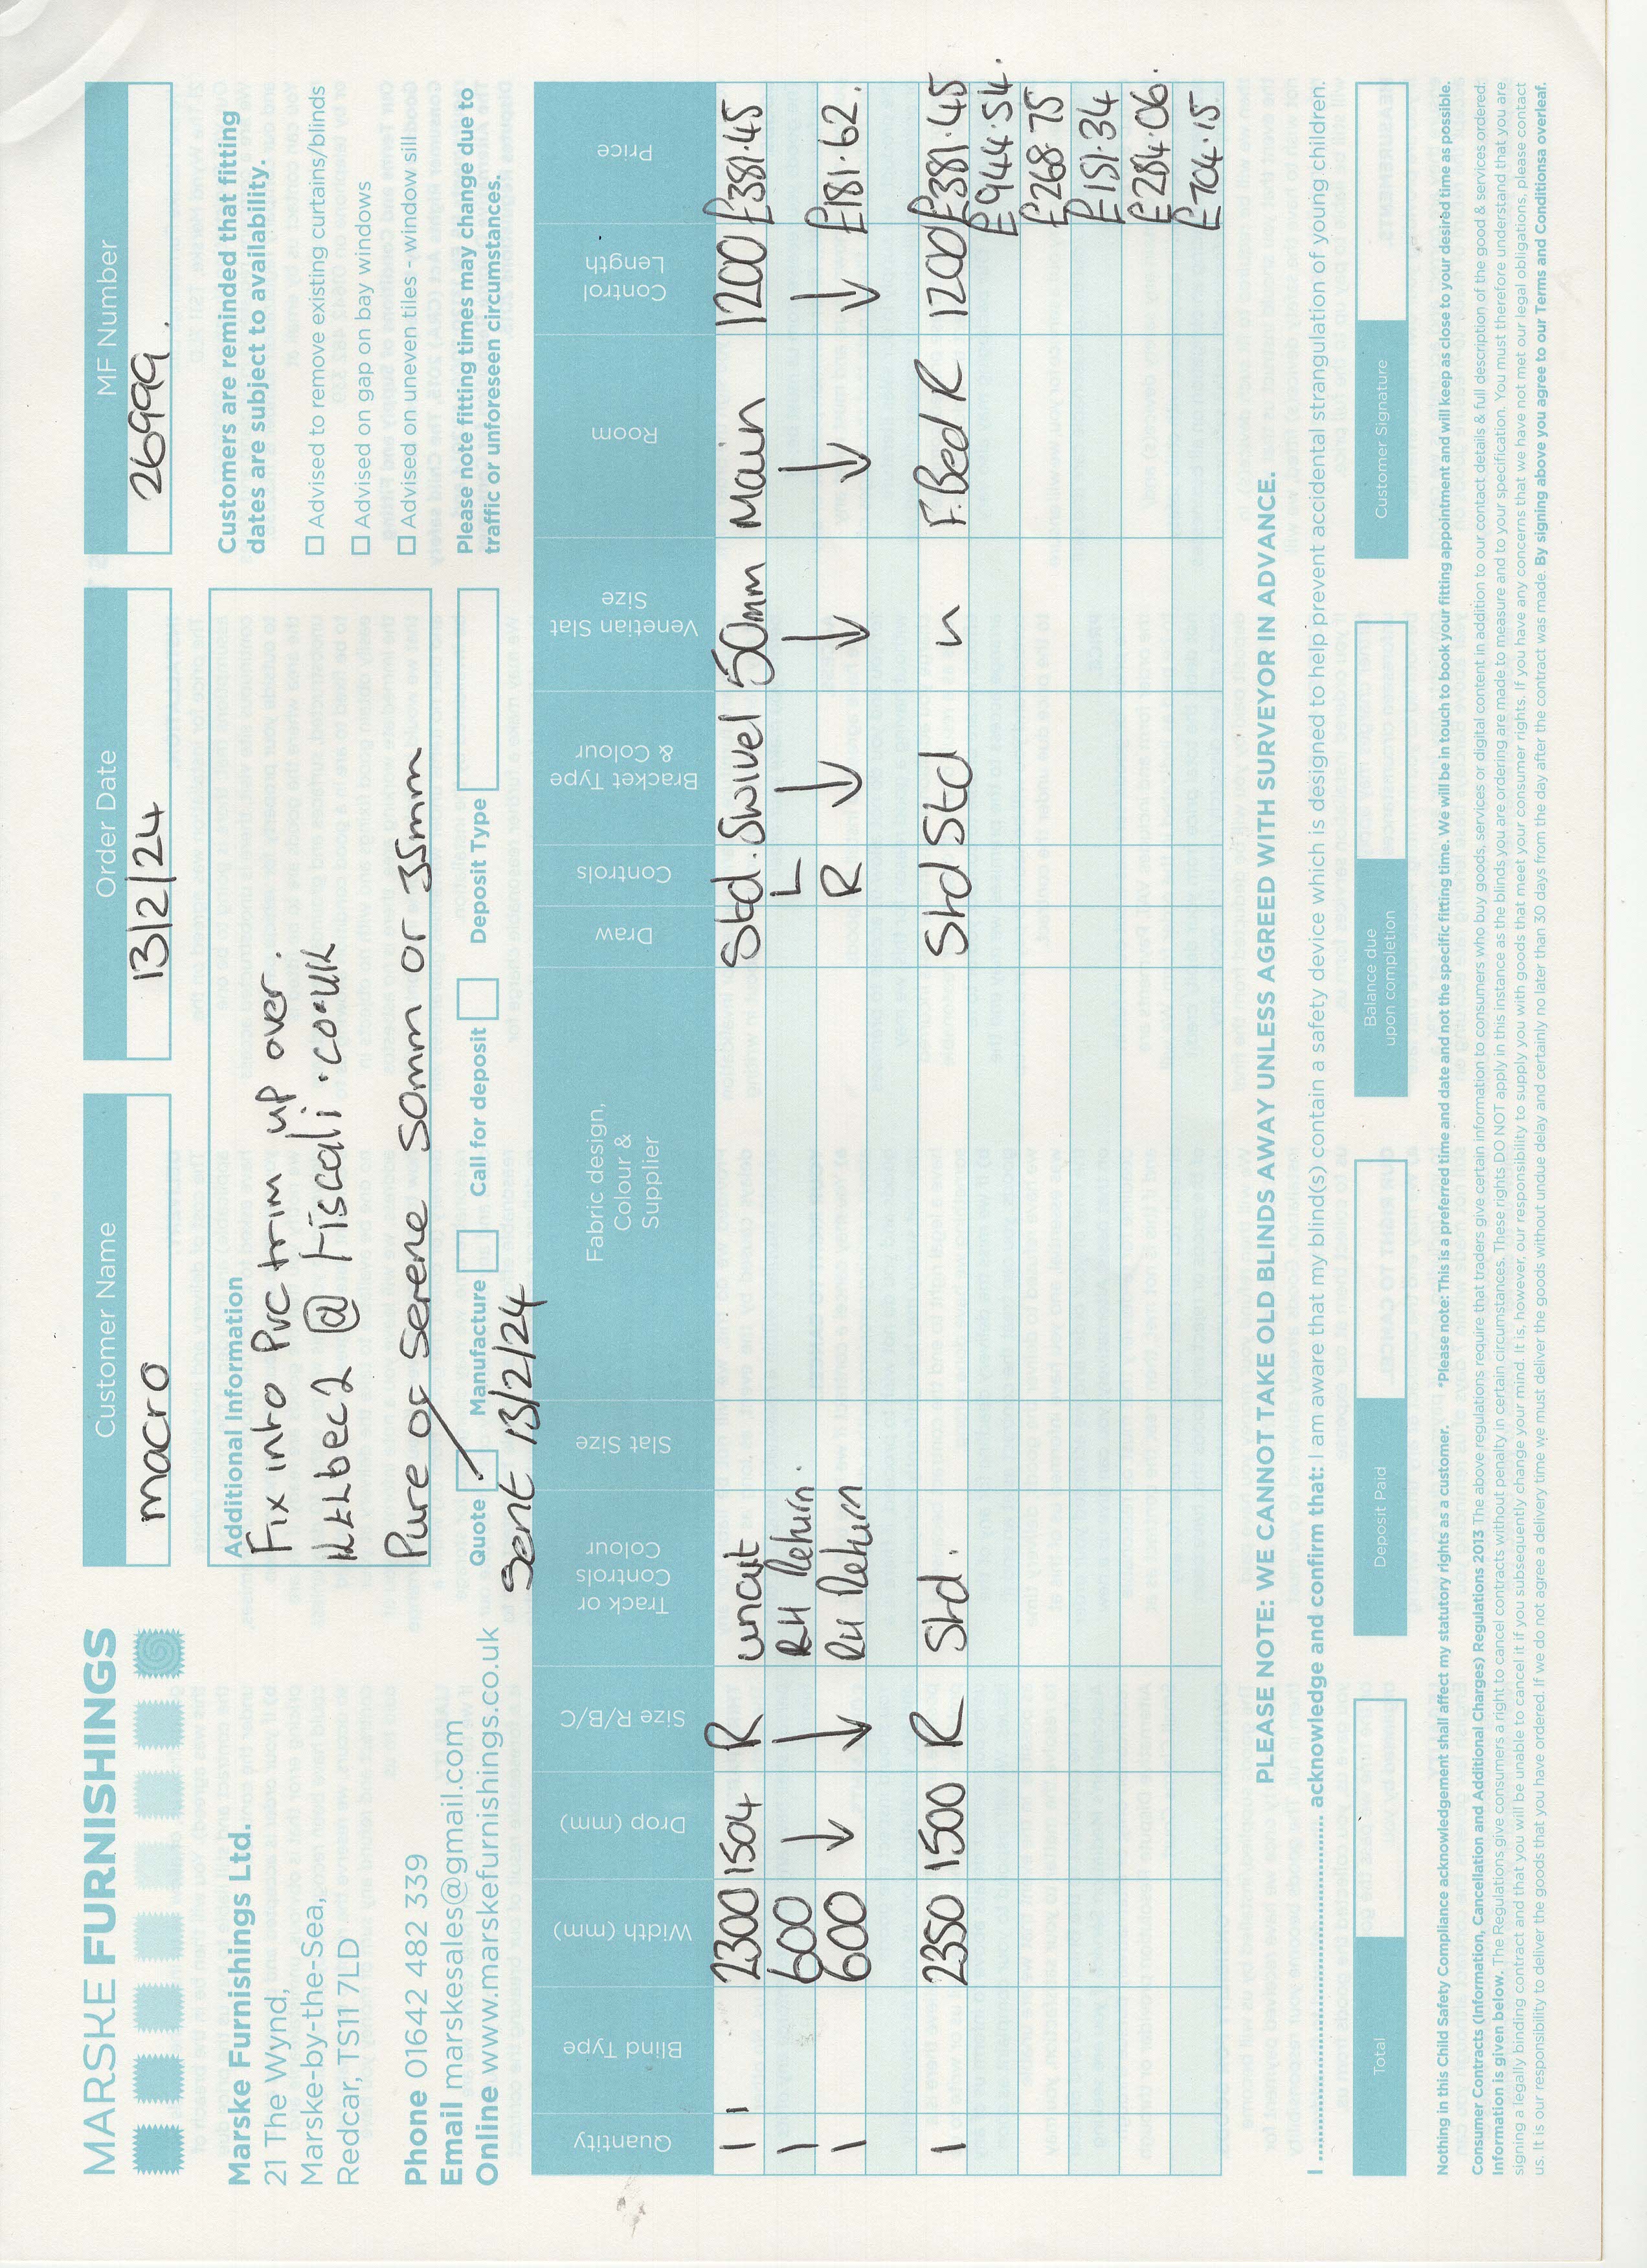 MARSKE FURNISHINGS
Marske Furnishings Ltd.
21 The Wynd,
Marske-by-the-Sea,
Redcar, TS11 7LD
Phone 01642 482 339
Email marskesales@gmail.com
Online www.marskefurnishings.co.uk
Customer Name
macro
Order Date
13/2/24
MF Number
26999.
Additional Information
Fix into PVC trim up over.
@ Fiscali.co.uk
Pure or Serene 50mm or 35mm
Customers are reminded that fitting
dates are subject to availability.
Advised to remove existing curtains/blinds
Advised on gap on bay windows
Advised on uneven tiles - window sill
Please note fitting times may change due to
traffic or unforeseen circumstances.
Quote Manufacture Call for deposit Deposit Type
Sent 13/2/24
Quantity Blind Type Width (mm) Drop (mm) Size R/B/C Track or Controls Colour Slat Size Fabric design, Colour & Supplier Draw Controls Bracket Type & Colour Venetian Slat Size Room Control Length Price
1 2300 1504 R uncut Std. Swivel 50mm Main 1200 £381.45
1 600 RH Return. L
1 600 RH Return R £181.62.
1 2350 1500 R Std. Std Std " F.Bed R 1200 £381.45
£944.54.
£268.75
£151.34
£284.06.
£704.15
PLEASE NOTE: WE CANNOT TAKE OLD BLINDS AWAY UNLESS AGREED WITH SURVEYOR IN ADVANCE.
I .................... acknowledge and confirm that: I am aware that my blind(s) contain a safety device which is designed to help prevent accidental strangulation of young children.
Total
Deposit Paid
Balance due upon completion
Customer Signature
Nothing in this Child Safety Compliance acknowledgement shall affect my statutory rights as a customer. *Please note: This is a preferred time and date and not the specific fitting time. We will be in touch to book your fitting appointment and will keep as close to your desired time as possible.
Consumer Contracts (Information, Cancellation and Additional Charges) Regulations 2013 The above regulations require that traders give certain information to consumers who buy goods, services or digital content in addition to our contact details & full description of the good & services ordered:
Information is given below. The Regulations give consumers a right to cancel contracts without penalty in certain circumstances. These rights DO NOT apply in this instance as the blinds you are ordering are made to measure and to your specification. You must therefore understand that you are
signing a legally binding contract and that you will be unable to cancel it if you subsequently change your mind. It is, however, our responsibility to supply you with goods that meet your consumer rights. If you have any concerns that we have not met our legal obligations, please contact
us. It is our responsibility to deliver the goods that you have ordered. If we do not agree a delivery time we must deliver the goods without undue delay and certainly no later than 30 days from the day after the contract was made. By signing above you agree to our Terms and Conditionsa overleaf.